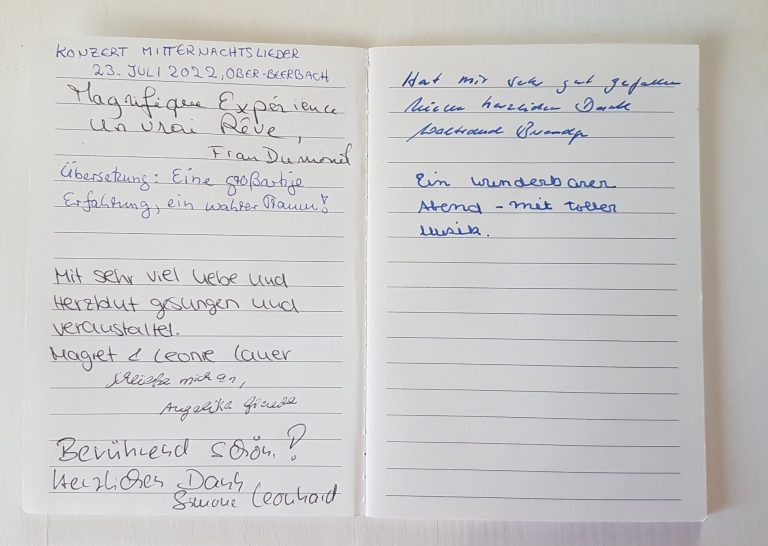 KONZERT MITTERNACHTSLIEDER
23. JULI 2022, OBER-BEERBACH
Magnifique Expérience
un vrai Rêve,
Frau Dumonel
Übersetzung: Eine großartige
Erfahrung, ein wahrer Traum!
Mit sehr viel Liebe und
Herzblut gesungen und
veranstaltet.
Magret & Leonie Lauer
schließe mich an,
Angelika
Berührend schön!
Herzlichen Dank
Simone Leonhard
Hat mir sehr gut gefallen
Vielen herzlichen Dank
Waltraud
Ein wunderbarer
Abend - mit toller
Musik.